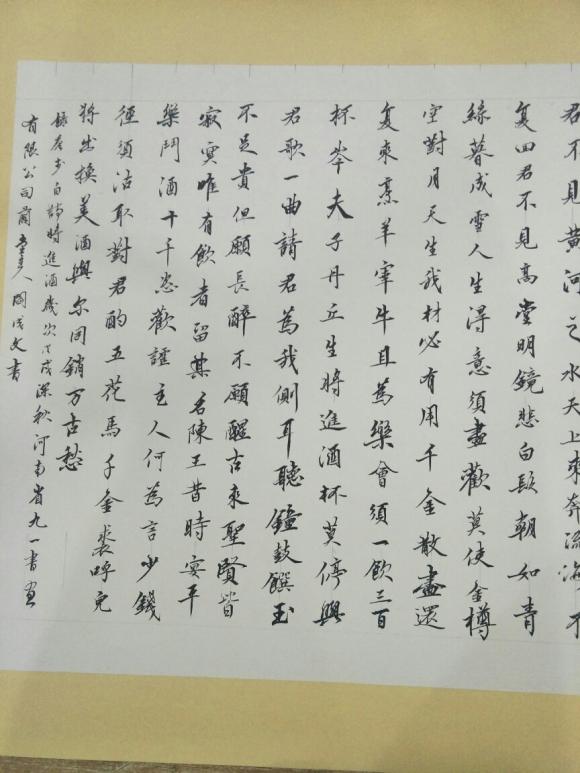 君不見黄河之水天上來奔流海不
复回君不見高堂明鏡悲白髮朝如青
絲暮成雪人生得意須盡歡莫使金樽
空對月天生我材必有用千金散盡還
复來烹羊宰牛且為樂會須一飲三百
杯岑夫子丹丘生將進酒杯莫停與
君歌一曲請君為我側耳聽鐘鼓饌玉
不足貴但願長醉不願醒古來聖賢皆
寂寞唯有飲者留其名陳王昔時宴平
樂鬥酒十千恣歡謔主人何為言少錢
徑須沽取對君酌五花馬千金裘呼兒
將出換美酒與尔同銷万古愁
白詩將進酒歲次戊戌深秋河南省九一書画
有限公司文書